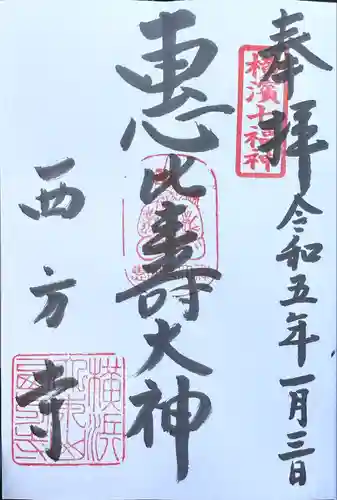 奉拝
令和五年一月三日
横濱七福神
惠比壽大神
西方寺